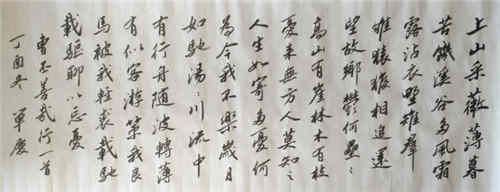 上山采薇薄暮
苦饑溪谷多風霜
露沾衣野雉群
雊猿猴相追還
望故鄉鬱何壘々
高山有崖林木有枝
憂來無方人莫知之
人生如寄多憂何
為今我不樂歲月
如馳湯々川流中
有行舟随波轉薄
有似客游策我良
馬被我輕裘載馳
載驅聊以忘憂
曹丕善哉行一首
丁酉冬 軍慶